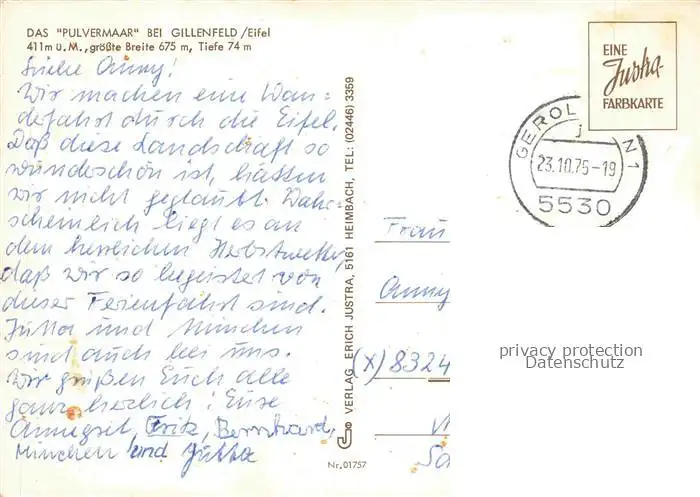 DAS "PULVERMAAR" BEI GILLENFELD/Eifel
411m ü.M., größte Breite 675 m, Tiefe 74 m
Liebe Anny!
Wir machen eine Wan=
defahrt durch die Eifel.
Daß diese Landschaft so
wunderschön ist, hätten
wir nicht geglaubt. Wahr-
scheinlich liegt es an
dem herrlichen Herbstwetter,
daß wir so begeistert von
dieser Ferienfahrt sind.
Jutta und Minchen
sind auch bei uns.
Wir grüßen Euch alle
ganz herzlich! Eure
Annegret, Fritz, Bernhard,
Minchen und Jutta
VERLAG ERICH JUSTRA, 5161 HEIMBACH, TEL: (02446) 3359
Nr. 01757
EINE
Justra-
FARBKARTE
GEROL N 1
j
23.10.75-19
5530
Frau
Anny
(X) 8324
privacy protection
Datenschutz